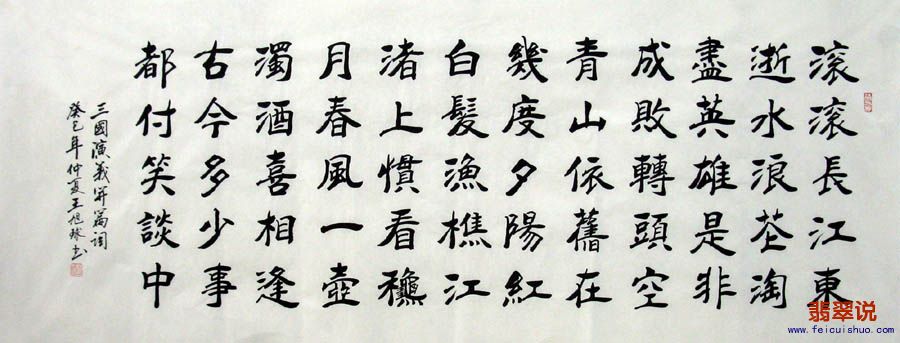 滚滚長江東
逝水浪花淘
盡英雄是非
成敗轉頭空
青山依舊在
幾度夕陽紅
白髮漁樵江
渚上慣看龝
月春風一壺
濁酒喜相逢
古今多少事
都付笑談中
三國演義開篇词
癸巳年仲夏王旭球书
翡翠说
www.feicuishuo.com